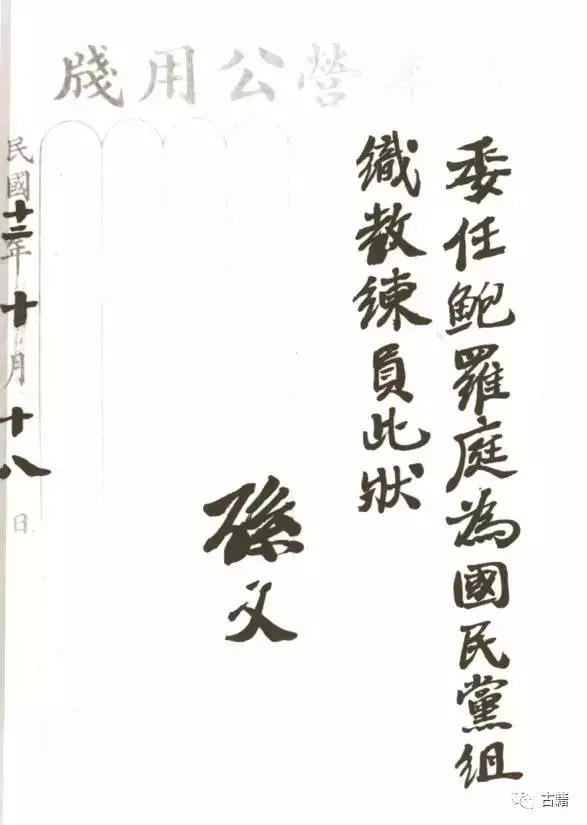 營公用牋
委任鮑羅庭為國民黨組
織教練員此狀
孫文
民國十二年十月十八日
古籍